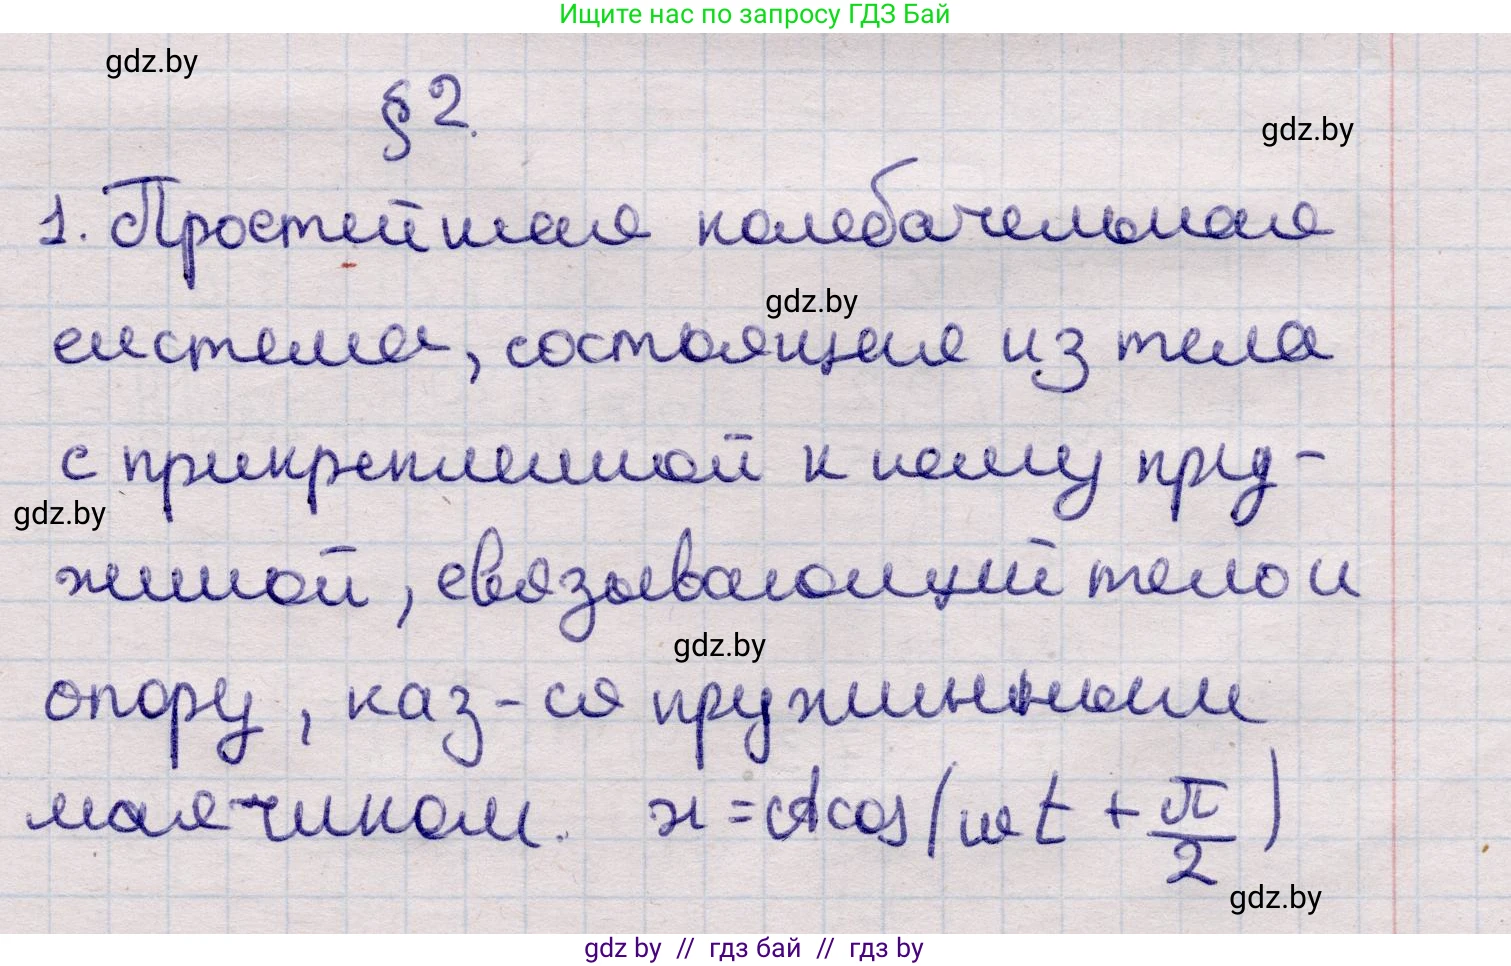 Ищите нас по запросу ГДЗ Бай
gdz.by
§ 2.
gdz.by
1. Простейшая колебательная
gdz.by
система, состоящая из тела
с прикрепленной к нему пруж-
gdz.by
жиной, связывающий тело и
gdz.by
опору, каз-ся пружинным
маятником. x = A cos(ωt + π/2)
gdz.by
gdz by // гдз бай // гдз by